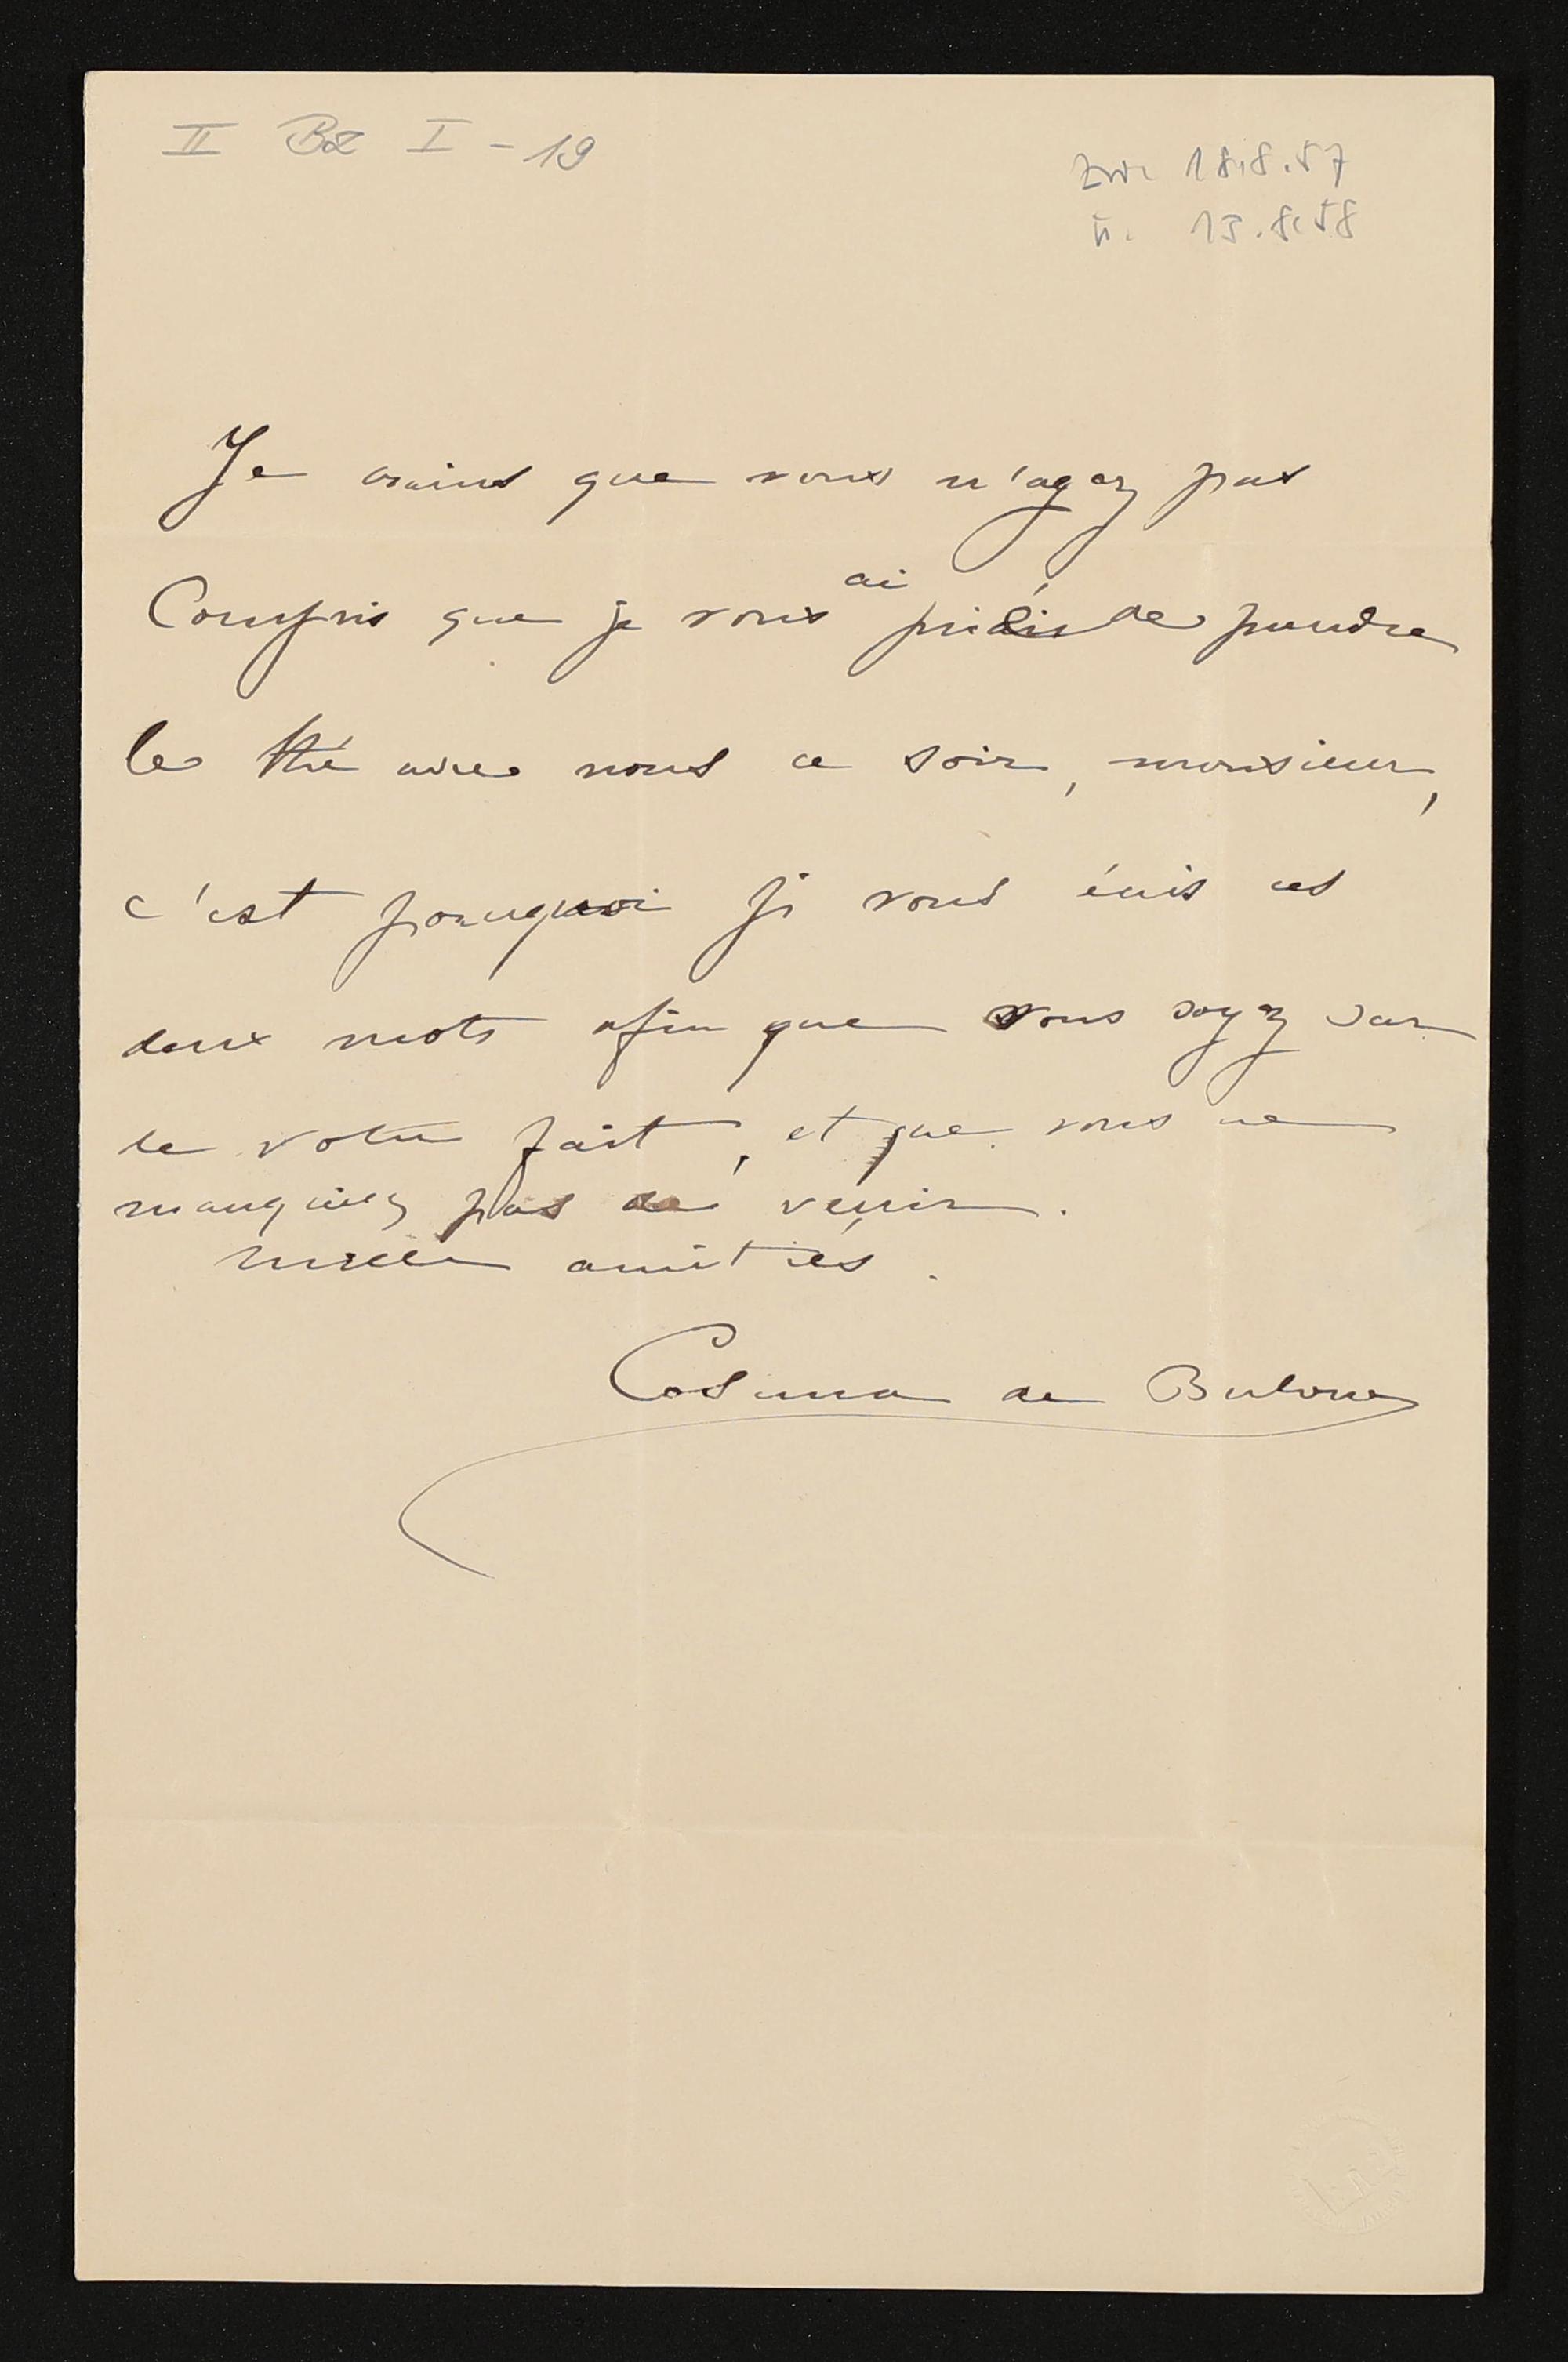 II BZ I - 19
zw. 18.8.57
u. 13.8.58
Je crains que vous n'ayez pas
Compris que je vous ai prié de prendre
le thé avec nous ce soir, monsieur,
c'est pourquoi je vous écris ces
deux mots afin que vous soyez sur
de votre fait, et que vous ne
manquiez pas de venir.
mille amitiés.
Cosima de Bulow